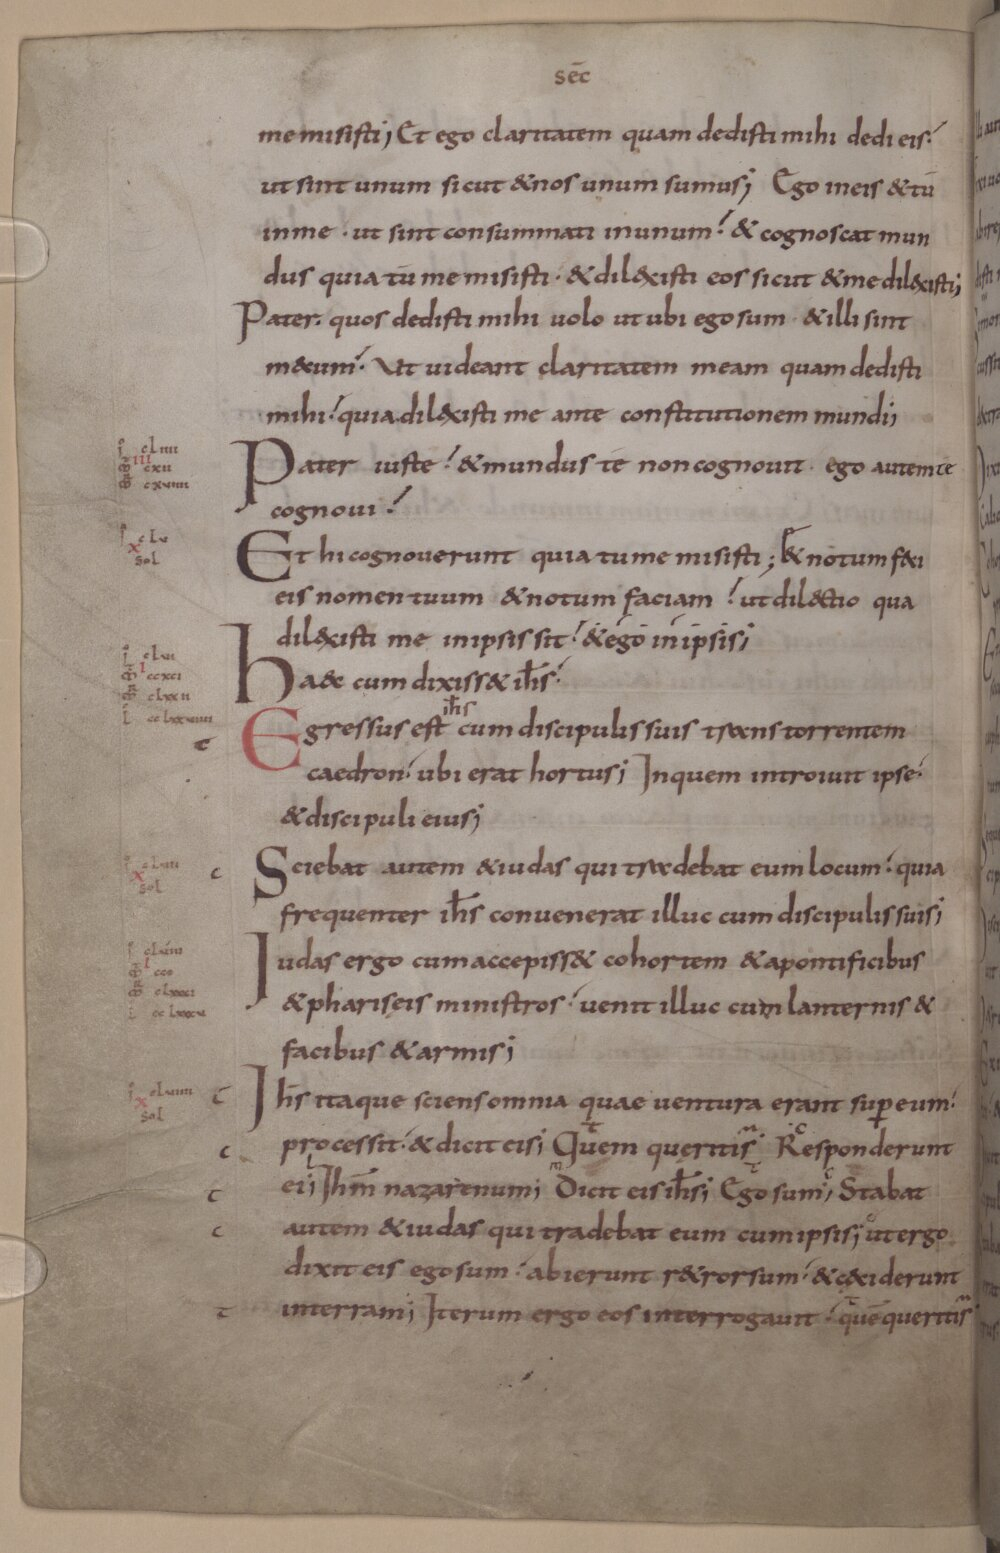 sēc
me misisti; Et ego claritatem quam dedisti mihi dedi eis.
ut sint unum sicut & nos unum sumus; Ego in eis & tu
in me · ut sint consummati in unum. & cognoscat mun
dus quia tu me misisti · & dil&xisti eos sicut & me dil&xisti;
Pater. quos dedisti mihi uolo ut ubi ego sum · & illi sint
m&cum. Ut uideant claritatem meam quam dedisti
mihi. quia dil&xisti me ante constitutionem mundi;
Pater iuste. & mundus te non cognouit · ego autem te
cognoui.
Et hi cognoverunt quia tu me misisti; & notum feci
eis nomen tuum & notum faciam. ut dilectio qua
dil&xisti me in ipsis sit. & ego in ipsis;
haec cum dixiss& ih̄s.
Egressus est ih̄s cum discipulis suis trans torrentem
caedron. ubi erat hortus; In quem introiuit ipse.
& discipuli eius;
Sciebat autem & iudas qui tradebat eum locum. quia
frequenter ih̄s convenerat illuc cum discipulis suis;
Iudas ergo cum accepiss& cohortem & a pontificibus
& phariseis ministros. uenit illuc cum lanternis &
facibus & armis;
Ih̄s itaque sciens omnia quae uentura erant sup̄ eum.
processit. & dicit eis; Quem queritis; Responderunt
ei; Ih̄m nazarenum; Dicit eis ih̄s; Ego sum; Stabat
autem & iudas qui tradebat eum cum ipsis; ut ergo
dixit eis ego sum. abierunt r&rorsum. & ceciderunt
in terram; Iterum ergo eos interrogauit. quē queritis